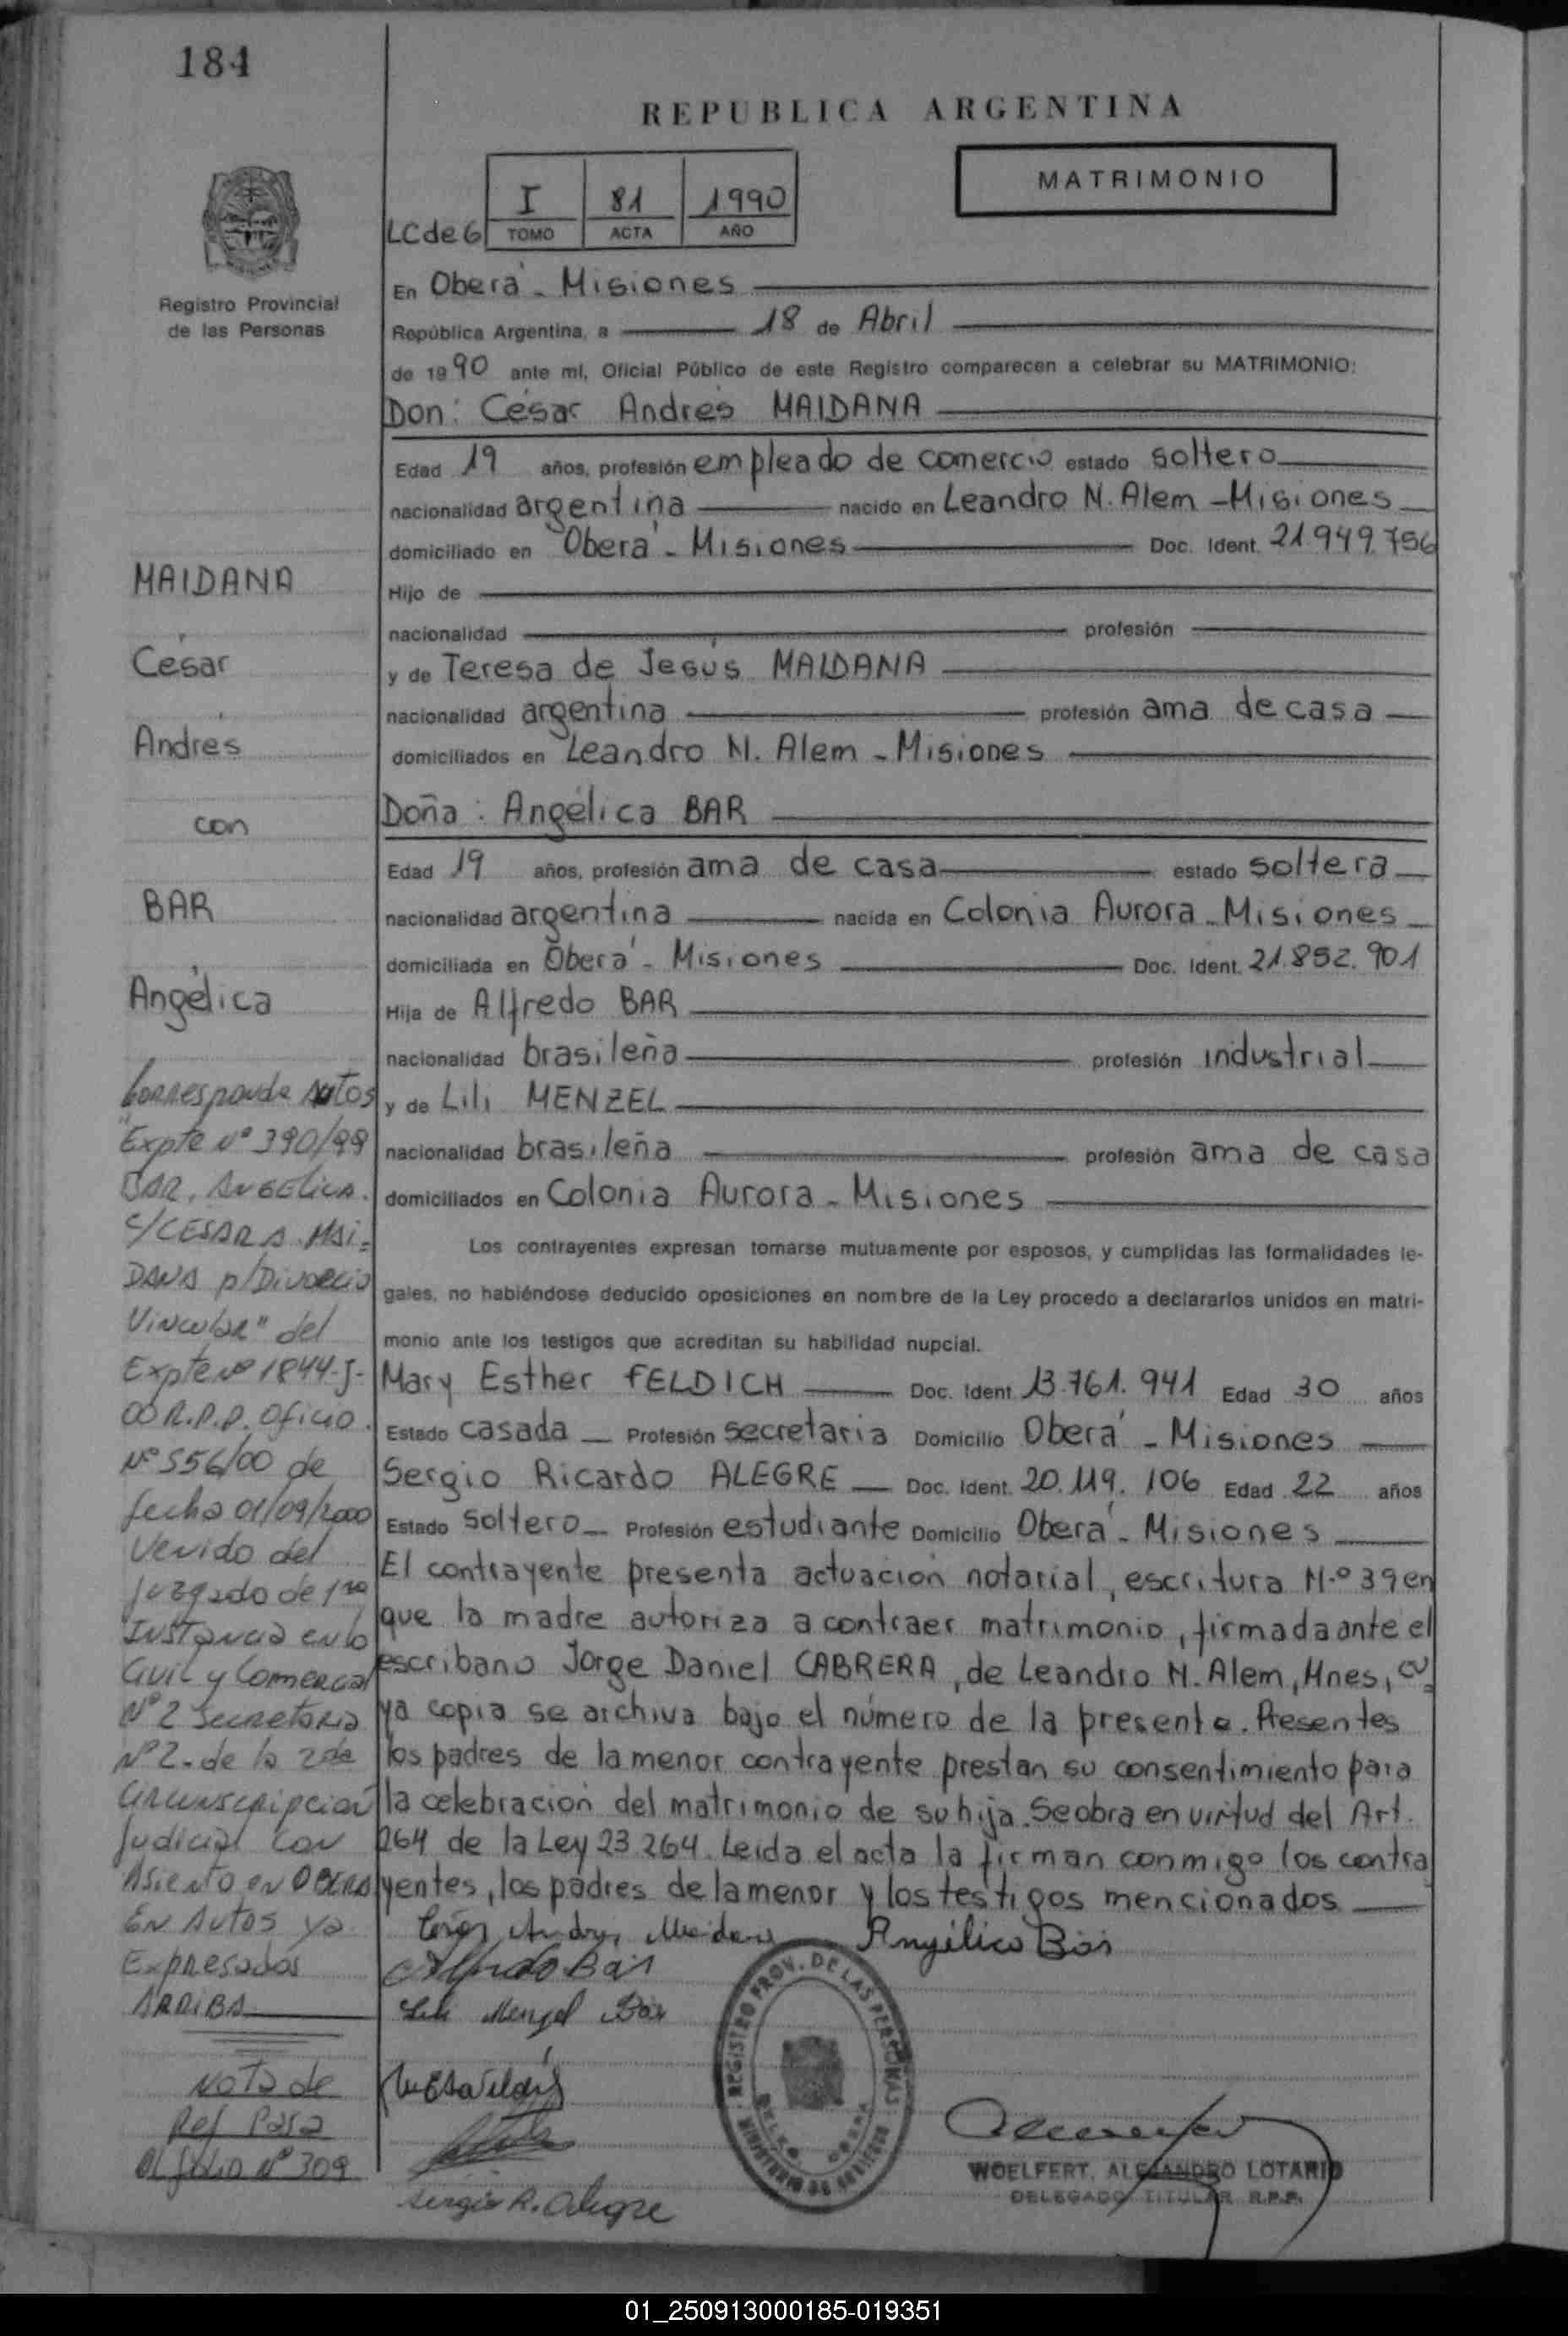 184
REPUBLICA ARGENTINA
MATRIMONIO
I 81 1990
LC de 6 TOMO ACTA AÑO
Registro Provincial
de las Personas
En Oberá - Misiones
República Argentina, a 18 de Abril
de 1990 ante mí, Oficial Público de este Registro comparecen a celebrar su MATRIMONIO:
Don: César Andrés MAIDANA
Edad 19 años, profesión empleado de comercio estado soltero
nacionalidad argentina nacido en Leandro N. Alem - Misiones
domiciliado en Oberá - Misiones Doc. Ident. 21.949.756
Hijo de
nacionalidad profesión
y de Teresa de Jesús MAIDANA
nacionalidad argentina profesión ama de casa
domiciliados en Leandro N. Alem - Misiones
Doña: Angélica BAR
Edad 19 años, profesión ama de casa estado soltera
nacionalidad argentina nacida en Colonia Aurora - Misiones
domiciliada en Oberá - Misiones Doc. Ident. 21.852.901
Hija de Alfredo BAR
nacionalidad brasileña profesión industrial
y de Lili MENZEL
nacionalidad brasileña profesión ama de casa
domiciliados en Colonia Aurora - Misiones
Los contrayentes expresan tomarse mutuamente por esposos, y cumplidas las formalidades le-
gales, no habiéndose deducido oposiciones en nombre de la Ley procedo a declararlos unidos en matri-
monio ante los testigos que acreditan su habilidad nupcial.
Mary Esther FELDICH Doc. Ident 13.761.941 Edad 30 años
Estado casada Profesión secretaria Domicilio Oberá - Misiones
Sergio Ricardo ALEGRE Doc. Ident. 20.119.106 Edad 22 años
Estado soltero Profesión estudiante Domicilio Oberá - Misiones
El contrayente presenta actuación notarial, escritura N.º 39 en
que la madre autoriza a contraer matrimonio, firmada ante el
escribano Jorge Daniel CABRERA, de Leandro N. Alem, Mnes, cu
ya copia se archiva bajo el número de la presente. Presentes
los padres de la menor contrayente prestan su consentimiento para
la celebración del matrimonio de su hija. Se obra en virtud del Art.
264 de la Ley 23.264. Leída el acta la firman conmigo los contra
yentes, los padres de la menor y los testigos mencionados
MAIDANA
César
Andrés
con
BAR
Angélica
Corresponde Autos
"Expte Nº 390/99
BAR, ANGELICA.
c/ CESAR A. MAI=
DANA p/Divorcio
Vincular" del
Expte Nº 1844-J-
00 R.P.P. Oficio
Nº 556/00 de
fecha 01/09/2000
Venido del
Juzgado de 1ra
Instancia en lo
Civil y Comercial
Nº 2 Secretaria
Nº 2. de la 2da
Circunscripcion
Judicial con
Asiento en OBERA
En Autos ya
Expresados
ARRIBA
Nota de
Ref Pasa
al folio Nº 309
Andrés Maidana Angélica Bar
Alfredo Bar
Lili Menzel Bar
Sergio R. Alegre
REGISTRO PROV. DE LAS PERSONAS
WOELFERT, ALEJANDRO LOTARIO
DELEGADO TITULAR R.P.P.
01_250913000185-019351